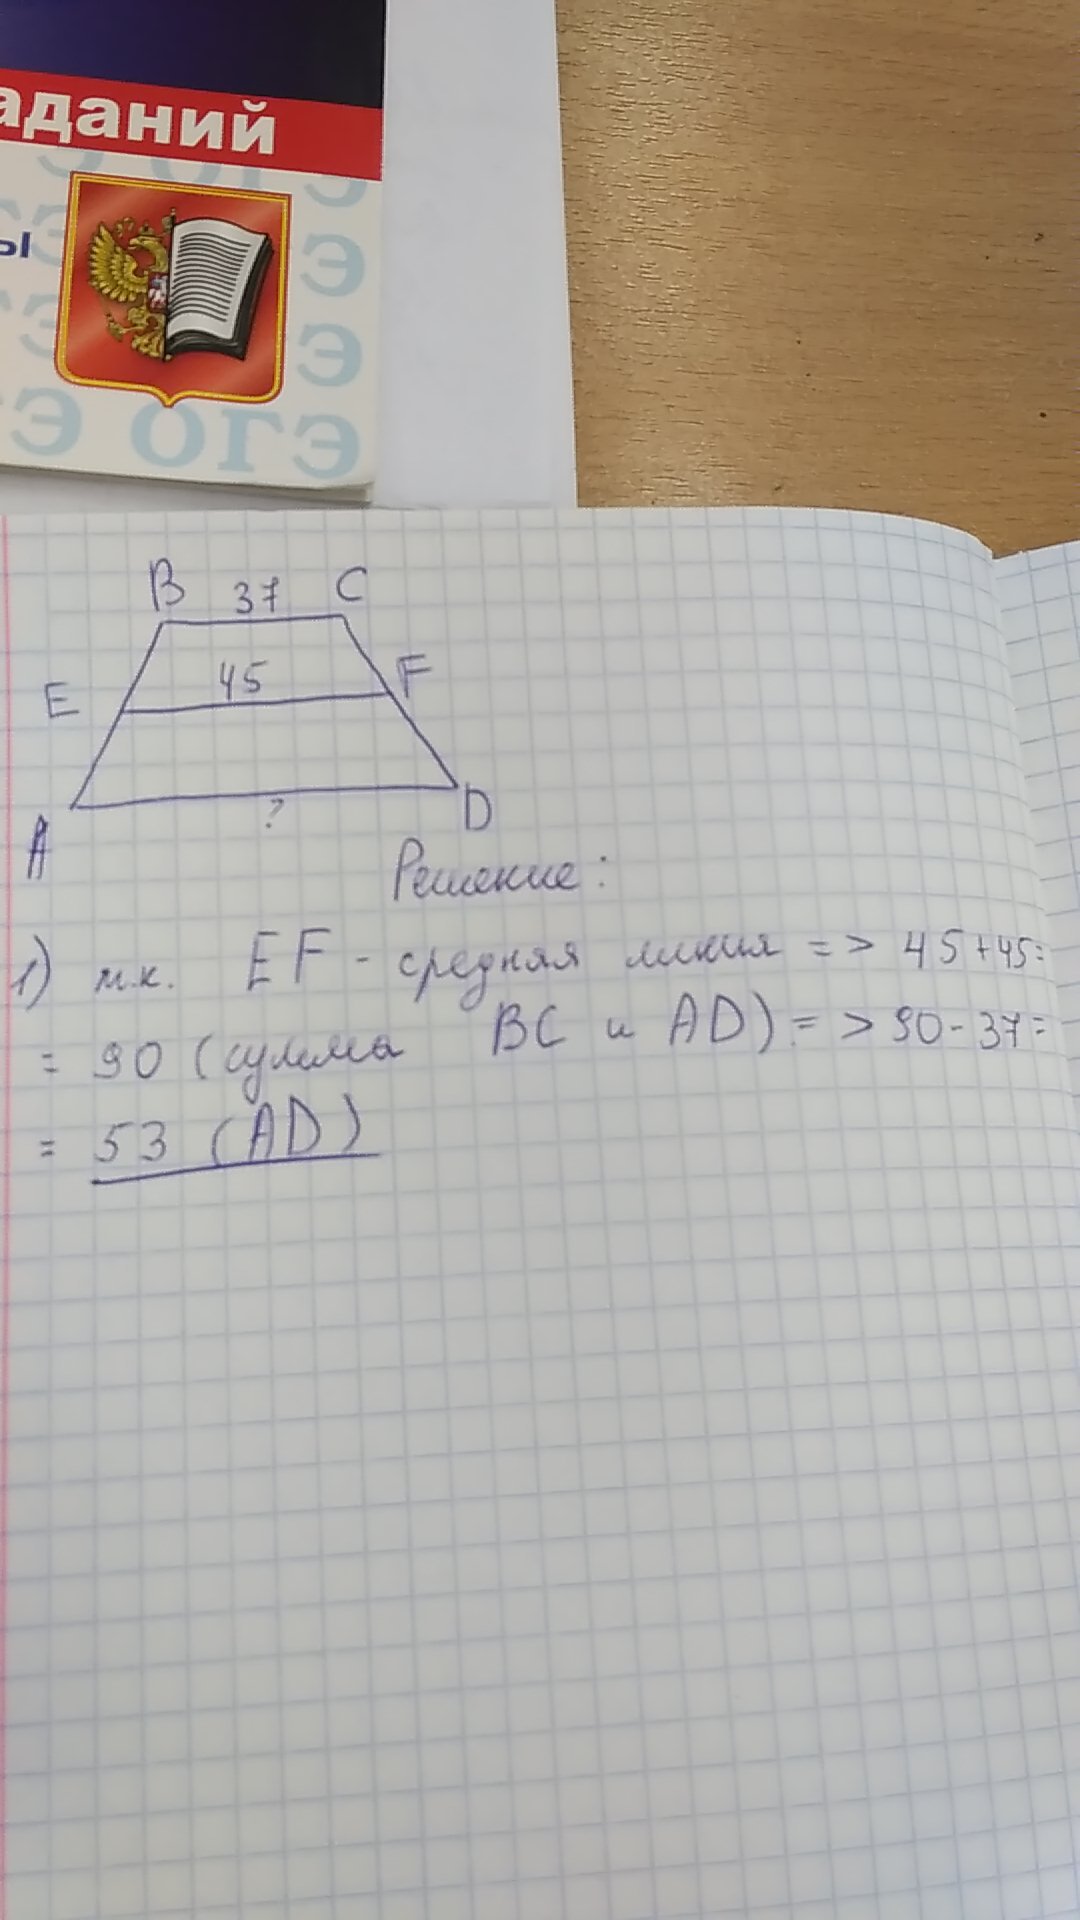 аданий
ы
ОГЭ
Э
Э
Э
Э ОГЭ
B 37 C
E 45 F
A ? D
Решение:
1) т.к. EF - средняя линия => 45+45=
= 90 (сумма BC и AD) => 90-37=
= 53 (AD)